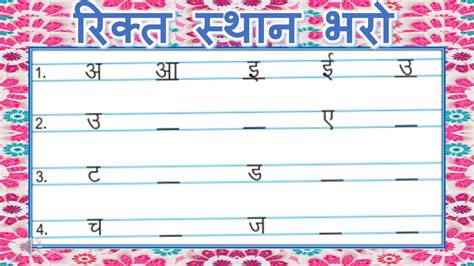 रिक्त स्थान भरो
1. अ आ इ ई उ
2. उ _ _ ए _
3. ट _ ड _ _
4. च _ ज _ _